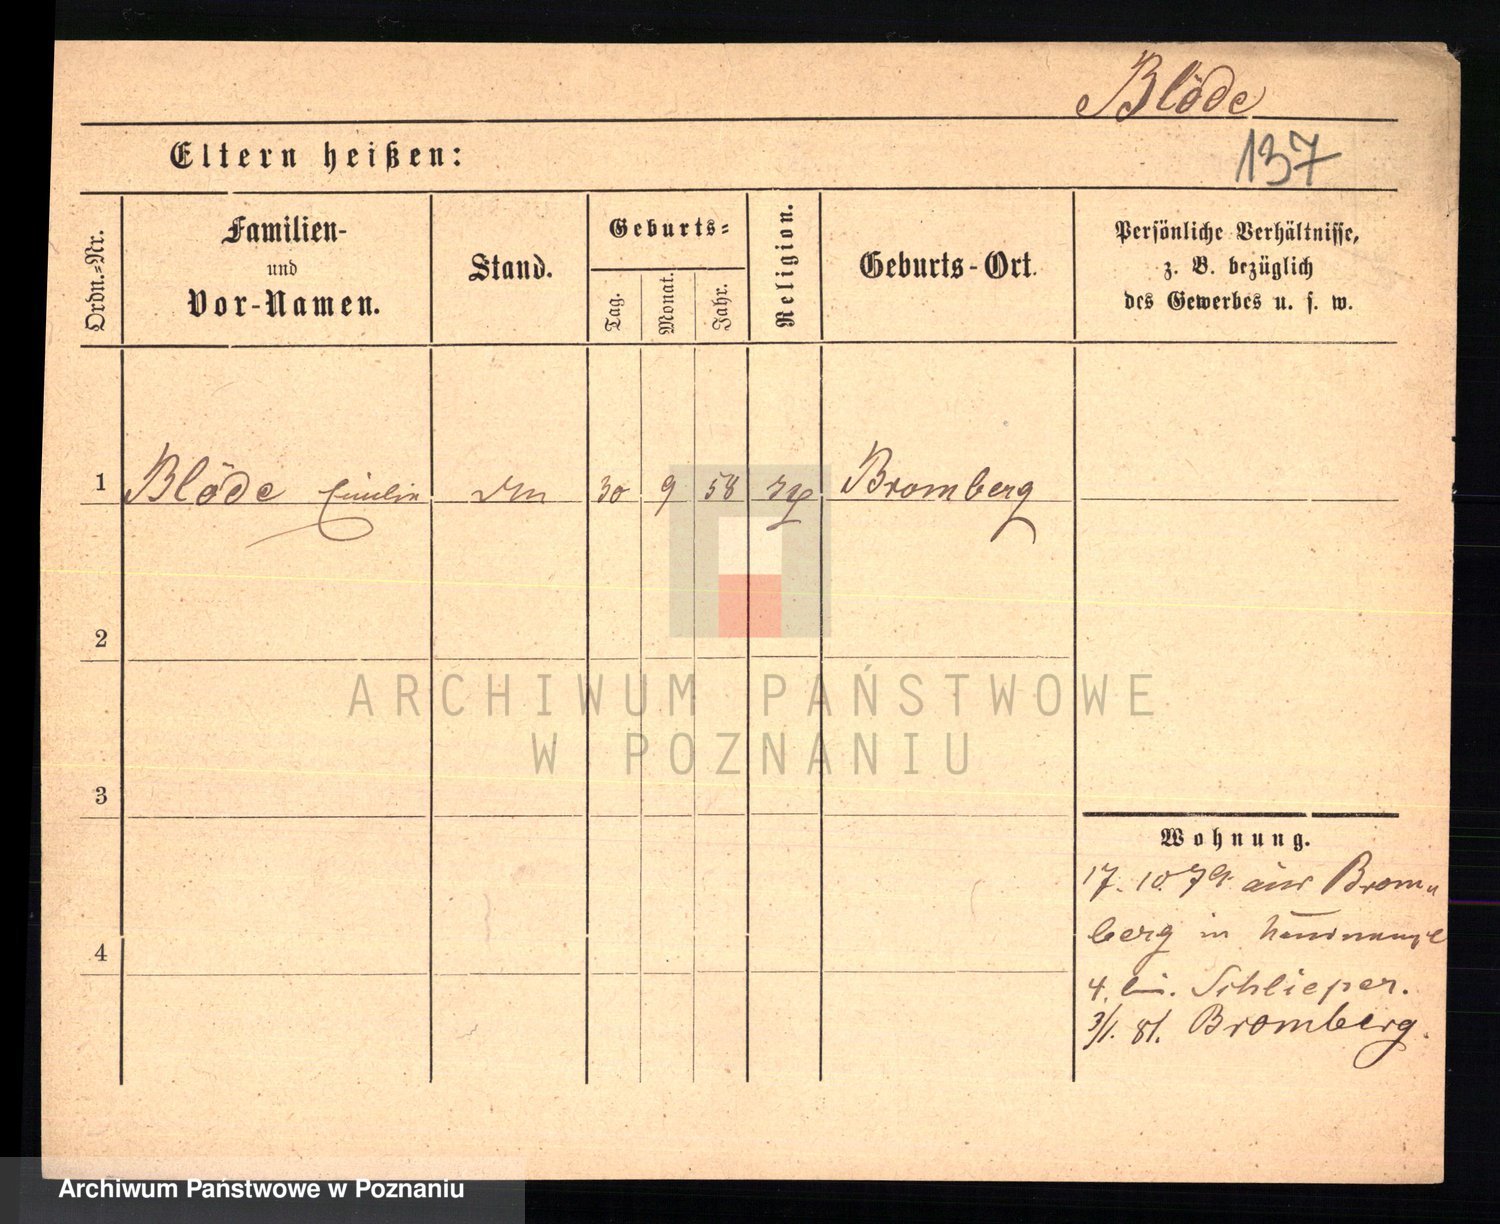 Blöde
137
Eltern heißen:
Ordn.=Nr.
Familien-
und
Vor-Namen.
Stand.
Geburts=
Tag.
Monat.
Jahr.
Religion.
Geburts-Ort.
Persönliche Verhältnisse,
z. B. bezüglich
des Gewerbes u. s. w.
1 Blöde Emilie 30 9 58 Bromberg
2
3
4
Wohnung.
17. 10 79. aus Brom
berg in
4. bei. Schlieper.
3/1. 81. Bromberg.
ARCHIWUM PAŃSTWOWE
W POZNANIU
Archiwum Państwowe w Poznaniu